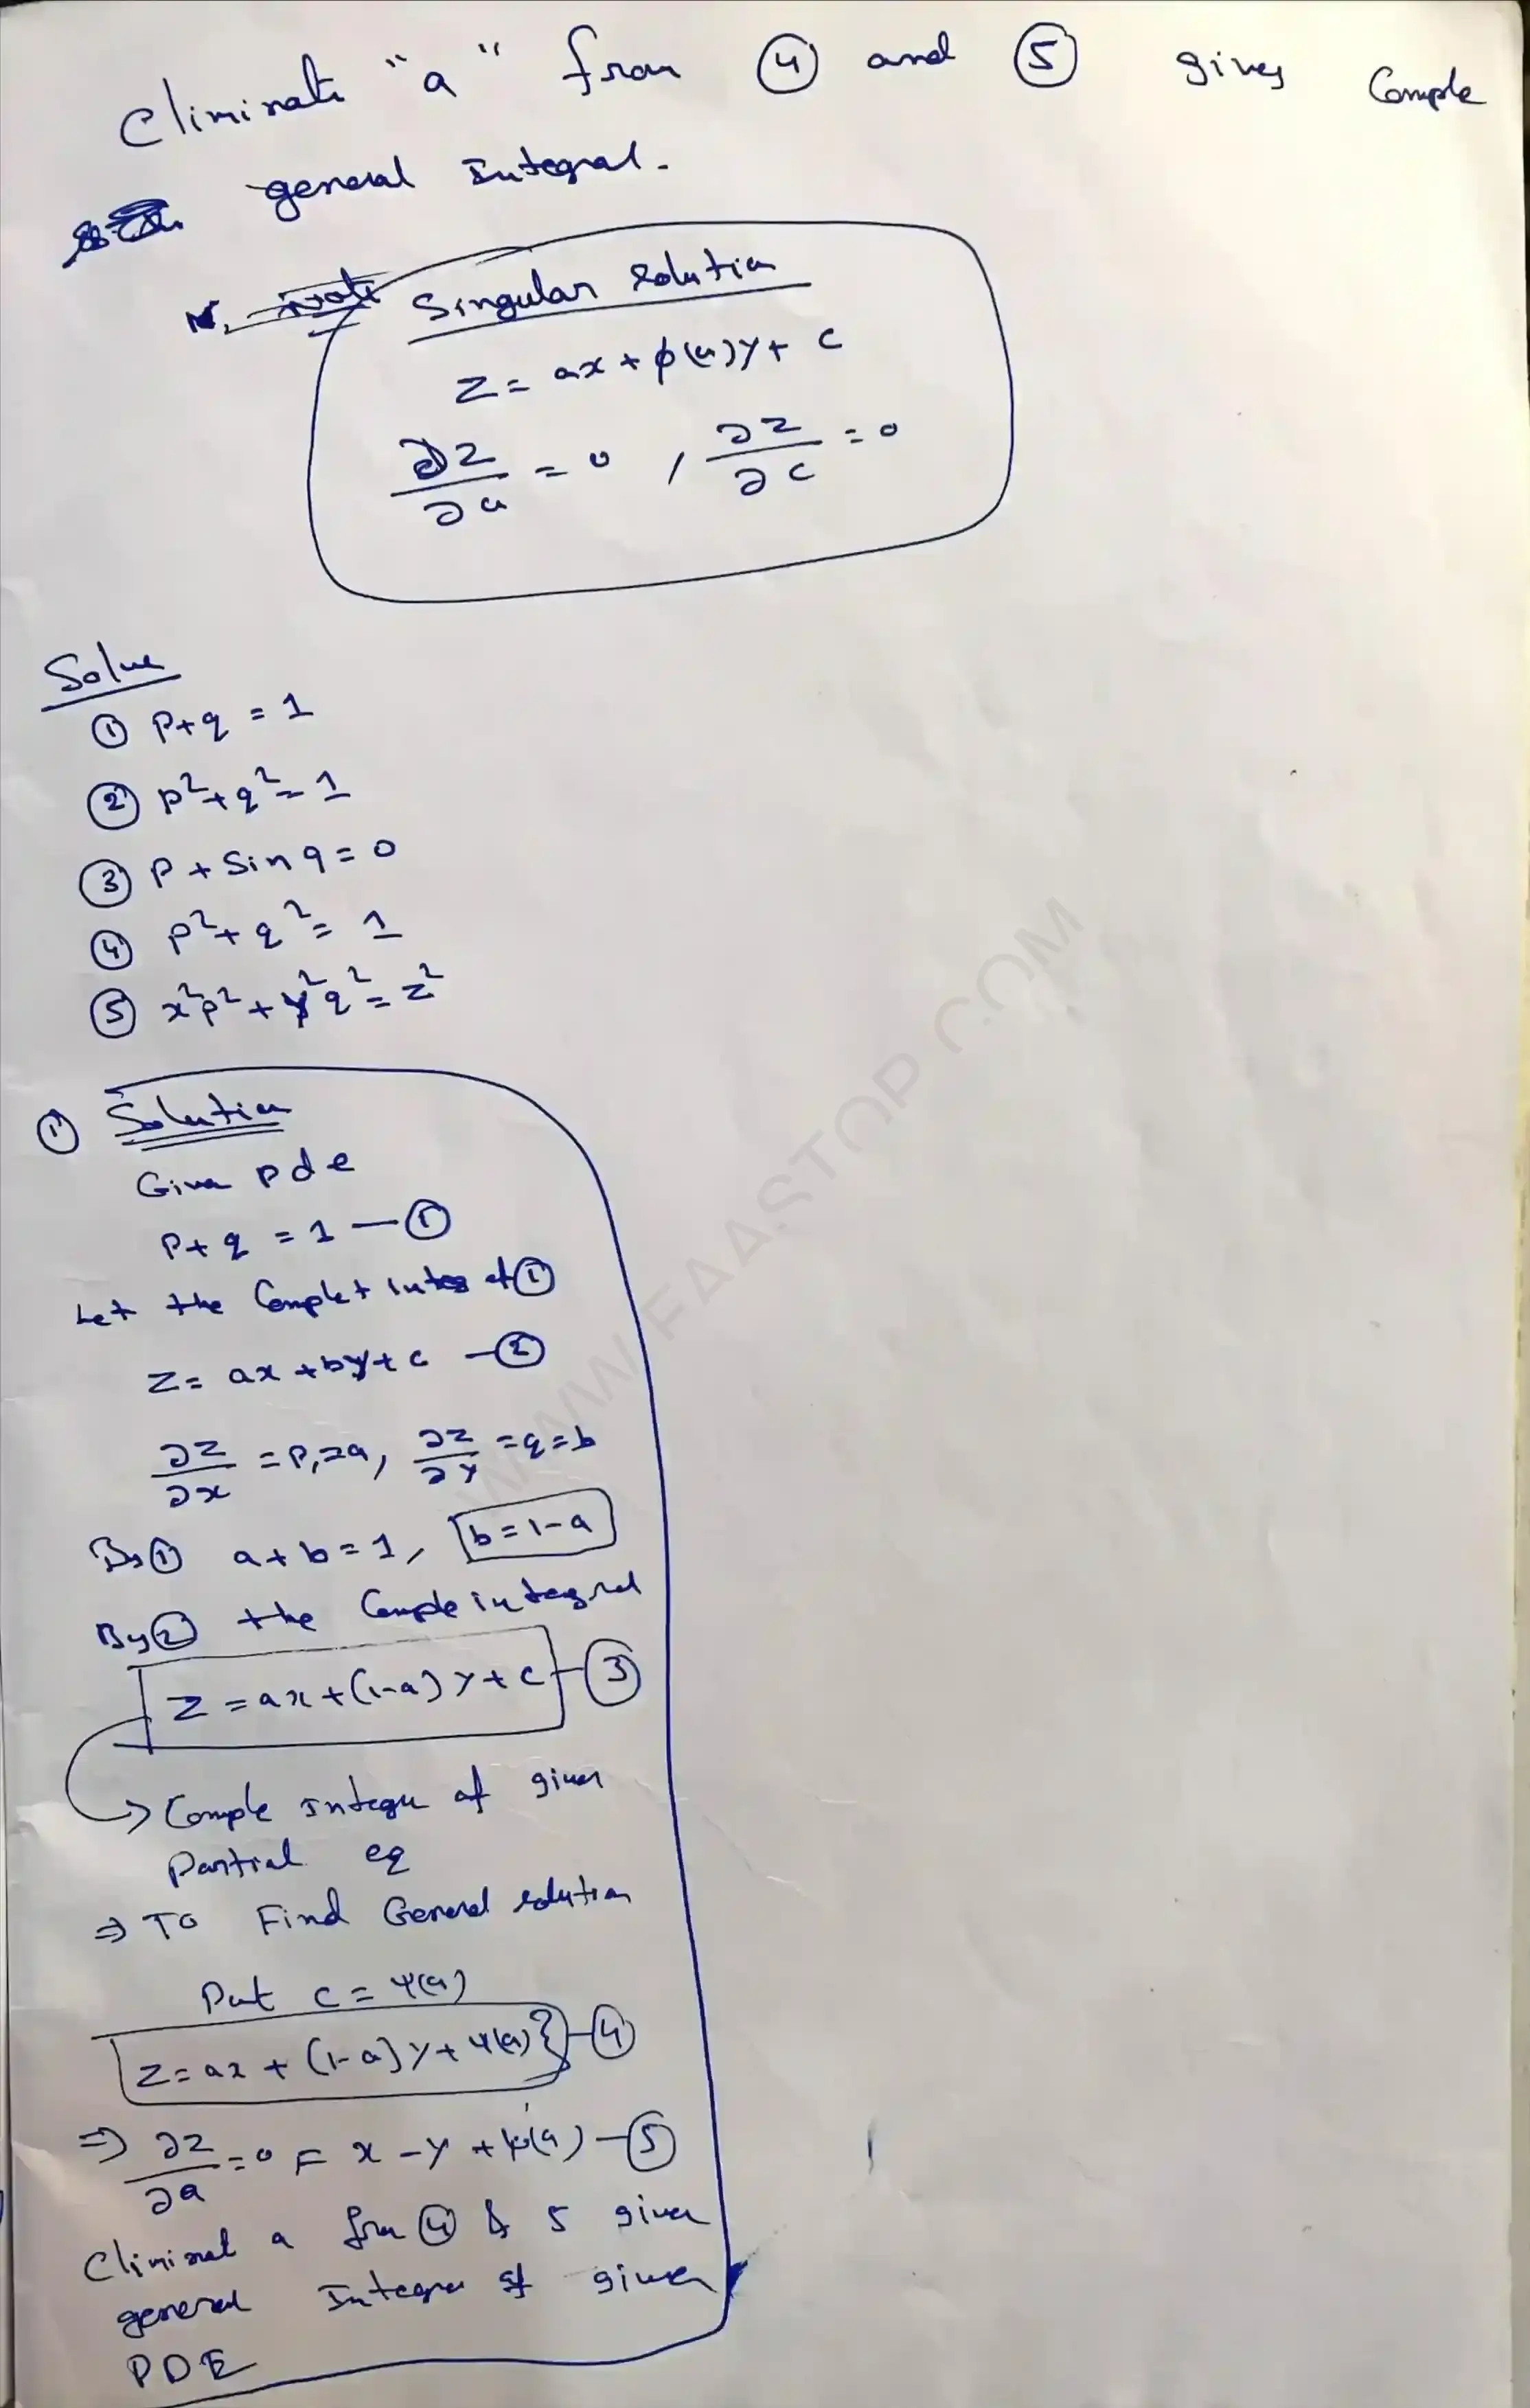 Eliminate "a" from ④ and ⑤ gives Comple
general Integral.
Singular solution
Z = ax + φ(a)y + c
∂Z/∂a = 0 , ∂Z/∂c = 0
Solve
① P+q = 1
② p²+q² = 1
③ P + Sin q = 0
④ p²+q² = 1
⑤ x²p² + y²q² = z²
① Solution
Given pde
P+q = 1 — ①
Let the Complet integ of ①
Z = ax + by + c — ②
∂Z/∂x = P = a, ∂Z/∂y = q = b
By ① a+b = 1, b = 1-a
By ② the Comple integral
Z = ax + (1-a) y + c — ③
→ Comple Integra of given
Partial eq
⇒ To Find General solution
Put c = ψ(a)
Z = ax + (1-a) y + ψ(a) } — ④
⇒ ∂Z/∂a = 0 = x - y + ψ'(a) — ⑤
Eliminat a from ④ & 5 given
general Integra of given
PDE
WWW.FAASTOP.COM